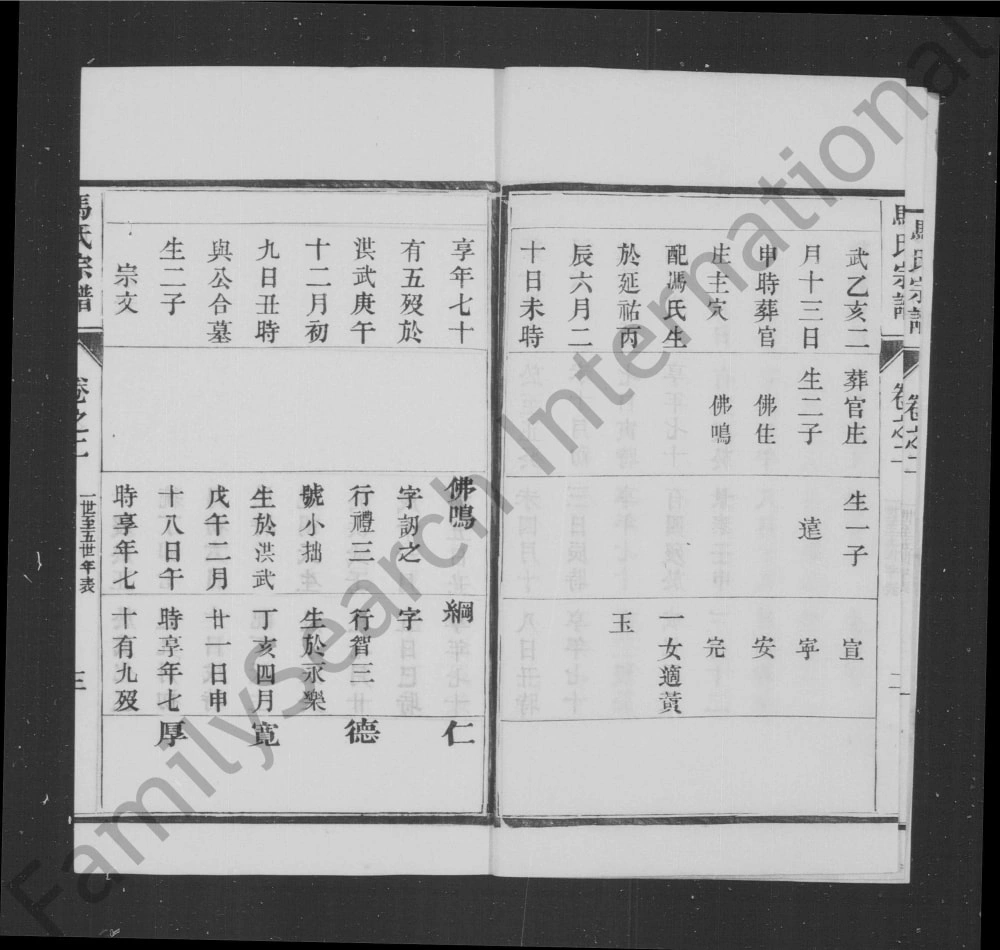 馬氏宗譜
卷之二
二
馬氏宗譜
卷之二
武乙亥二
月十三日
申時葬官
庄主穴
配馮氏生
於延祐丙
辰六月二
十日未時
葬官庄
生二子
佛住
佛鳴
生一子
達
宣
寧
安
完
一女適黃
玉
享年七十
有五歿於
洪武庚午
十二月初
九日丑時
與公合墓
生二子
宗文
佛鳴
字訒之
行禮三
號小拙
生於洪武
戊午二月
十八日午
時享年七
綱
字
行智三
生於永樂
丁亥四月
廿一日申
時享年七
十有九歿
仁
德
寬
厚
馬氏宗譜
卷之二
一世至五世年表
三
FamilySearch International